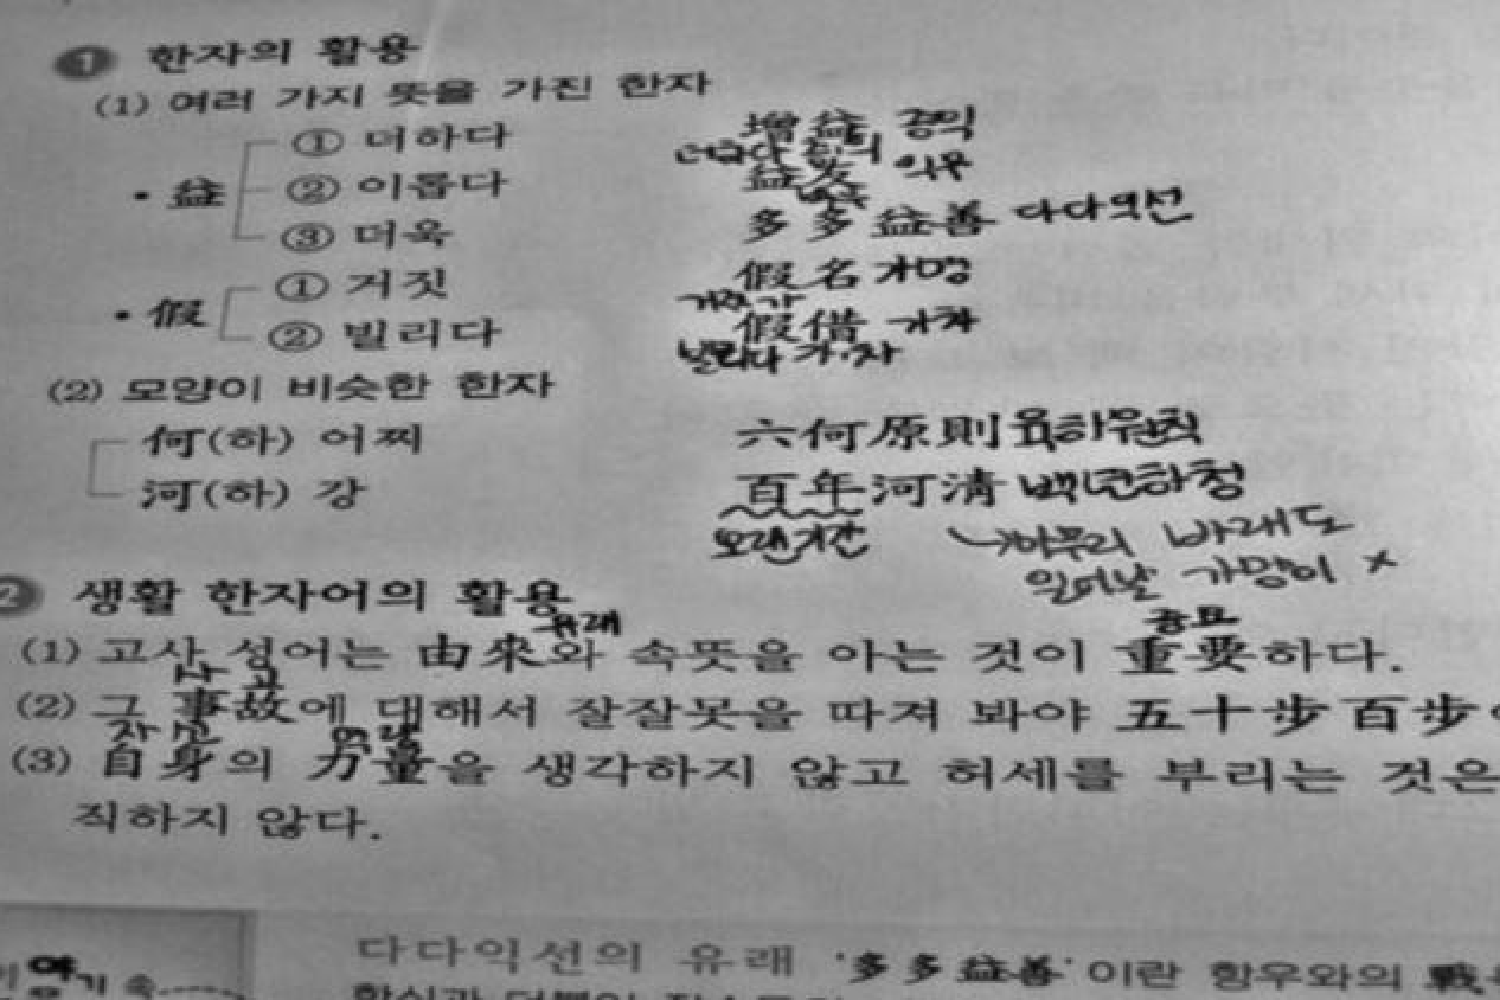 1 한자의 활용
(1) 여러 가지 뜻을 가진 한자
· 益
① 더하다 增益 증익
② 이롭다 益友 익우
③ 더욱 多多益善 다다익선
· 假
① 거짓 假名 가명
② 빌리다 假借 가차
빌리다 가·차
(2) 모양이 비슷한 한자
何(하) 어찌 六何原則 육하원칙
河(하) 강 百年河淸 백년하청
오랜시간 아무리 바래도
일어날 가망이 x
2 생활 한자어의 활용
유래 중요
(1) 고사 성어는 由來와 속뜻을 아는 것이 重要하다.
사고
(2) 그 事故에 대해서 잘잘못을 따져 봐야 五十步百步
자신 역량
(3) 自身의 力量을 생각하지 않고 허세를 부리는 것은
직하지 않다.
다다익선의 유래 '多多益善'이란 항우와의 戰